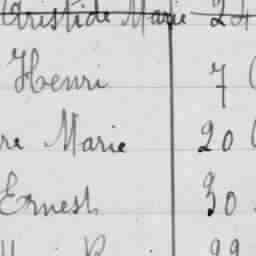 Aristide Marie 24
Henri 7
re Marie 20
Ernest 30